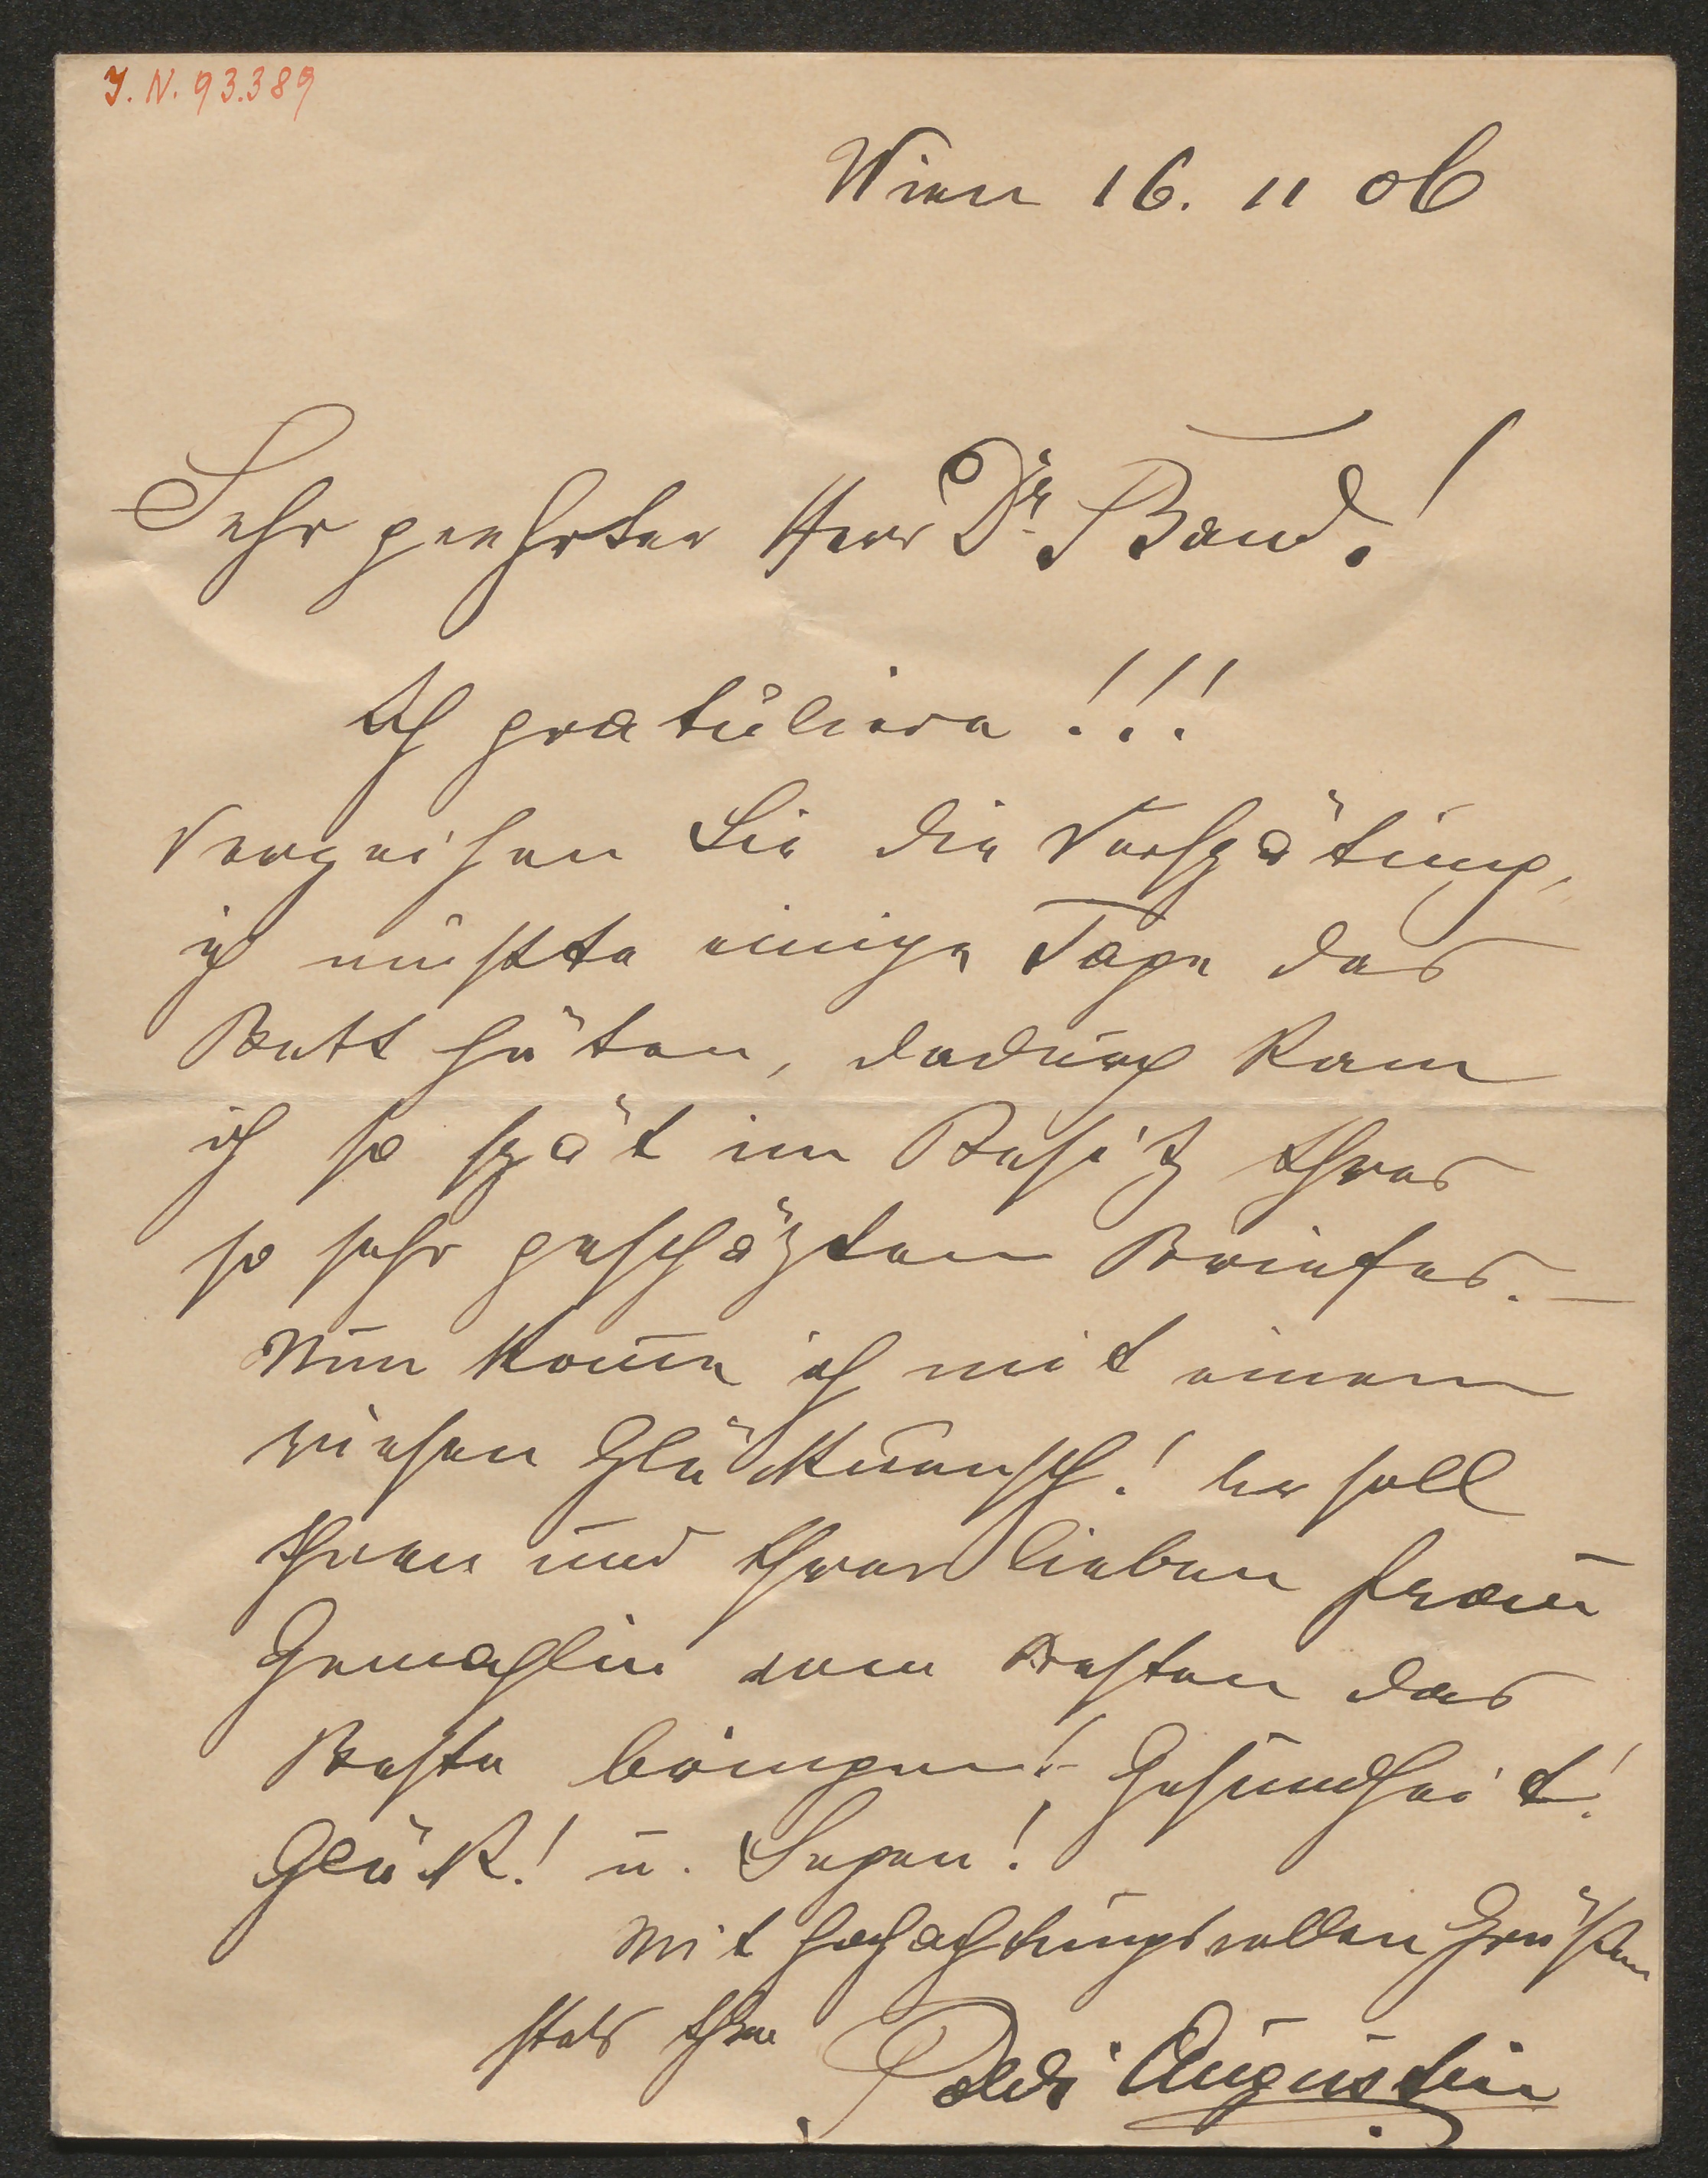 J. N. 93.389
Wien 16. 11 06
Sehr geehrter Herr Dr. Band!
Ich gratuliere!!!
Verzeihen Sie die Verspätung,
ich mußte einige Tage das
Bett hüten, dadurch kam
ich so spät im Besitz Ihres
so sehr geschäzten Briefes. –
Nun kom̄e ich mit einem
riesen Glückwunsch! Er soll
Ihnen und Ihrer lieben Frau
Gemahlin vom Besten das
Beste bringen! – Gesundheit!
Glück! u. Segen!
Mit hochachtungsvollen Grüßen
stets Ihre Poldi Augustin